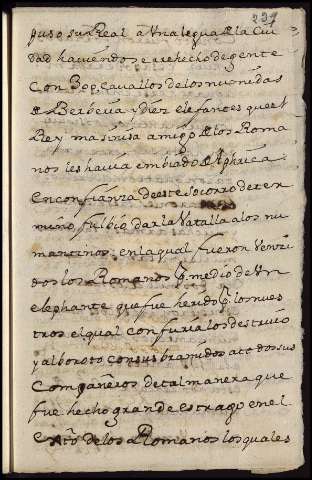 239
puso su Real a Una legua de la Ciu
dad haviendose rrehecho de gente
Con 300 Cavallos de los numidas
de Berberia y Diez elefantes que el
Rey masinisa amigo de los Roma
nos les havia embiado de Aphrica
En confianza de este Socorro deter
mino fulbio dar la Vatalla a los nu
mantinos en la qual fueron Venzi
dos los Romanos P. medio de Un
elephante que fue herido P. los nues
tros el qual con furia los destruio
y alboroto con sus bramidos a todos sus
Compañeros de tal manera que
fue hecho grande estrago en el
Exto. de los Romanos los quales